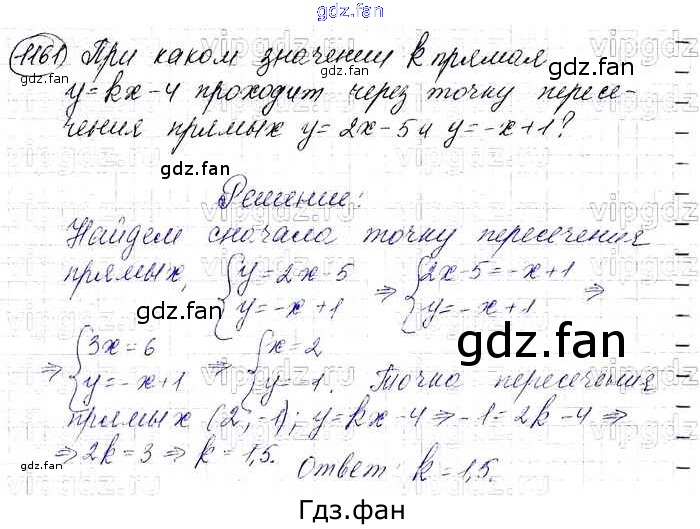 gdz.fan
1161) При каком значении k прямая
y=kx-4 проходит через точку пересе-
чения прямых y=2x-5 и y=-x+1?
Решение:
Найдем сначала точку пересечения
прямых, { y=2x-5 ⇒ { 2x-5=-x+1 ⇒
y=-x+1 y=-x+1
⇒ { 3x=6 ⇒ { x=2
y=-x+1 y=-1. Точка пересечения
прямых (2;-1); y=kx-4 ⇒ -1=2k-4 ⇒
⇒ 2k=3 ⇒ k=1,5. Ответ: k=1,5.
Гдз.фан